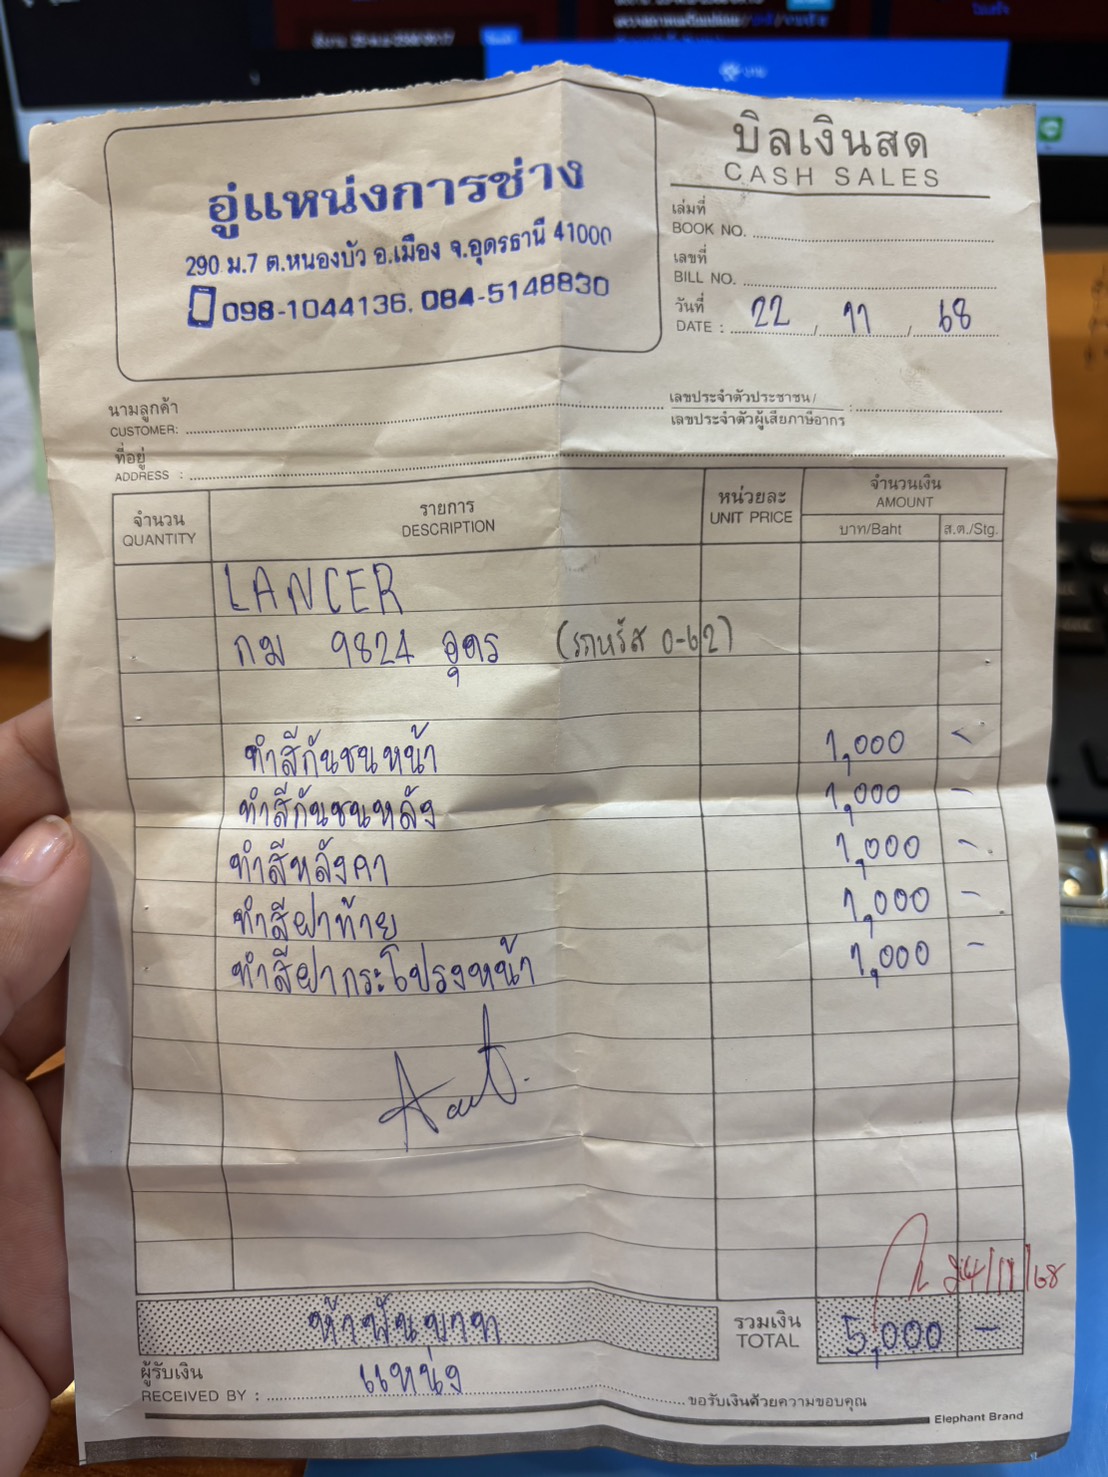 บิลเงินสด
CASH SALES
อู่แหน่งการช่าง
290 ม.7 ต.หนองบัว อ.เมือง จ.อุดรธานี 41000
098-1044136, 084-5148830
เล่มที่
BOOK NO.
เลขที่
BILL NO.
วันที่
DATE : 22 / 11 / 68
นามลูกค้า
CUSTOMER:
เลขประจำตัวประชาชน /
เลขประจำตัวผู้เสียภาษีอากร :
ที่อยู่
ADDRESS :
จำนวน รายการ หน่วยละ จำนวนเงิน
QUANTITY DESCRIPTION UNIT PRICE AMOUNT
บาท/Baht ส.ต./Stg.
LANCER
กม 9824 อุดร (รถหรัส 0-62)
ทำสีกันชนหน้า 1,000 -
ทำสีกันชนหลัง 1,000 -
ทำสีหลังคา 1,000 -
ทำสีฝาท้าย 1,000 -
ทำสีฝากระโปรงหน้า 1,000 -
24/11/68
ห้าพันบาท รวมเงิน 5,000 -
TOTAL
ผู้รับเงิน
RECEIVED BY : แหน่ง ขอรับเงินด้วยความขอบคุณ
Elephant Brand